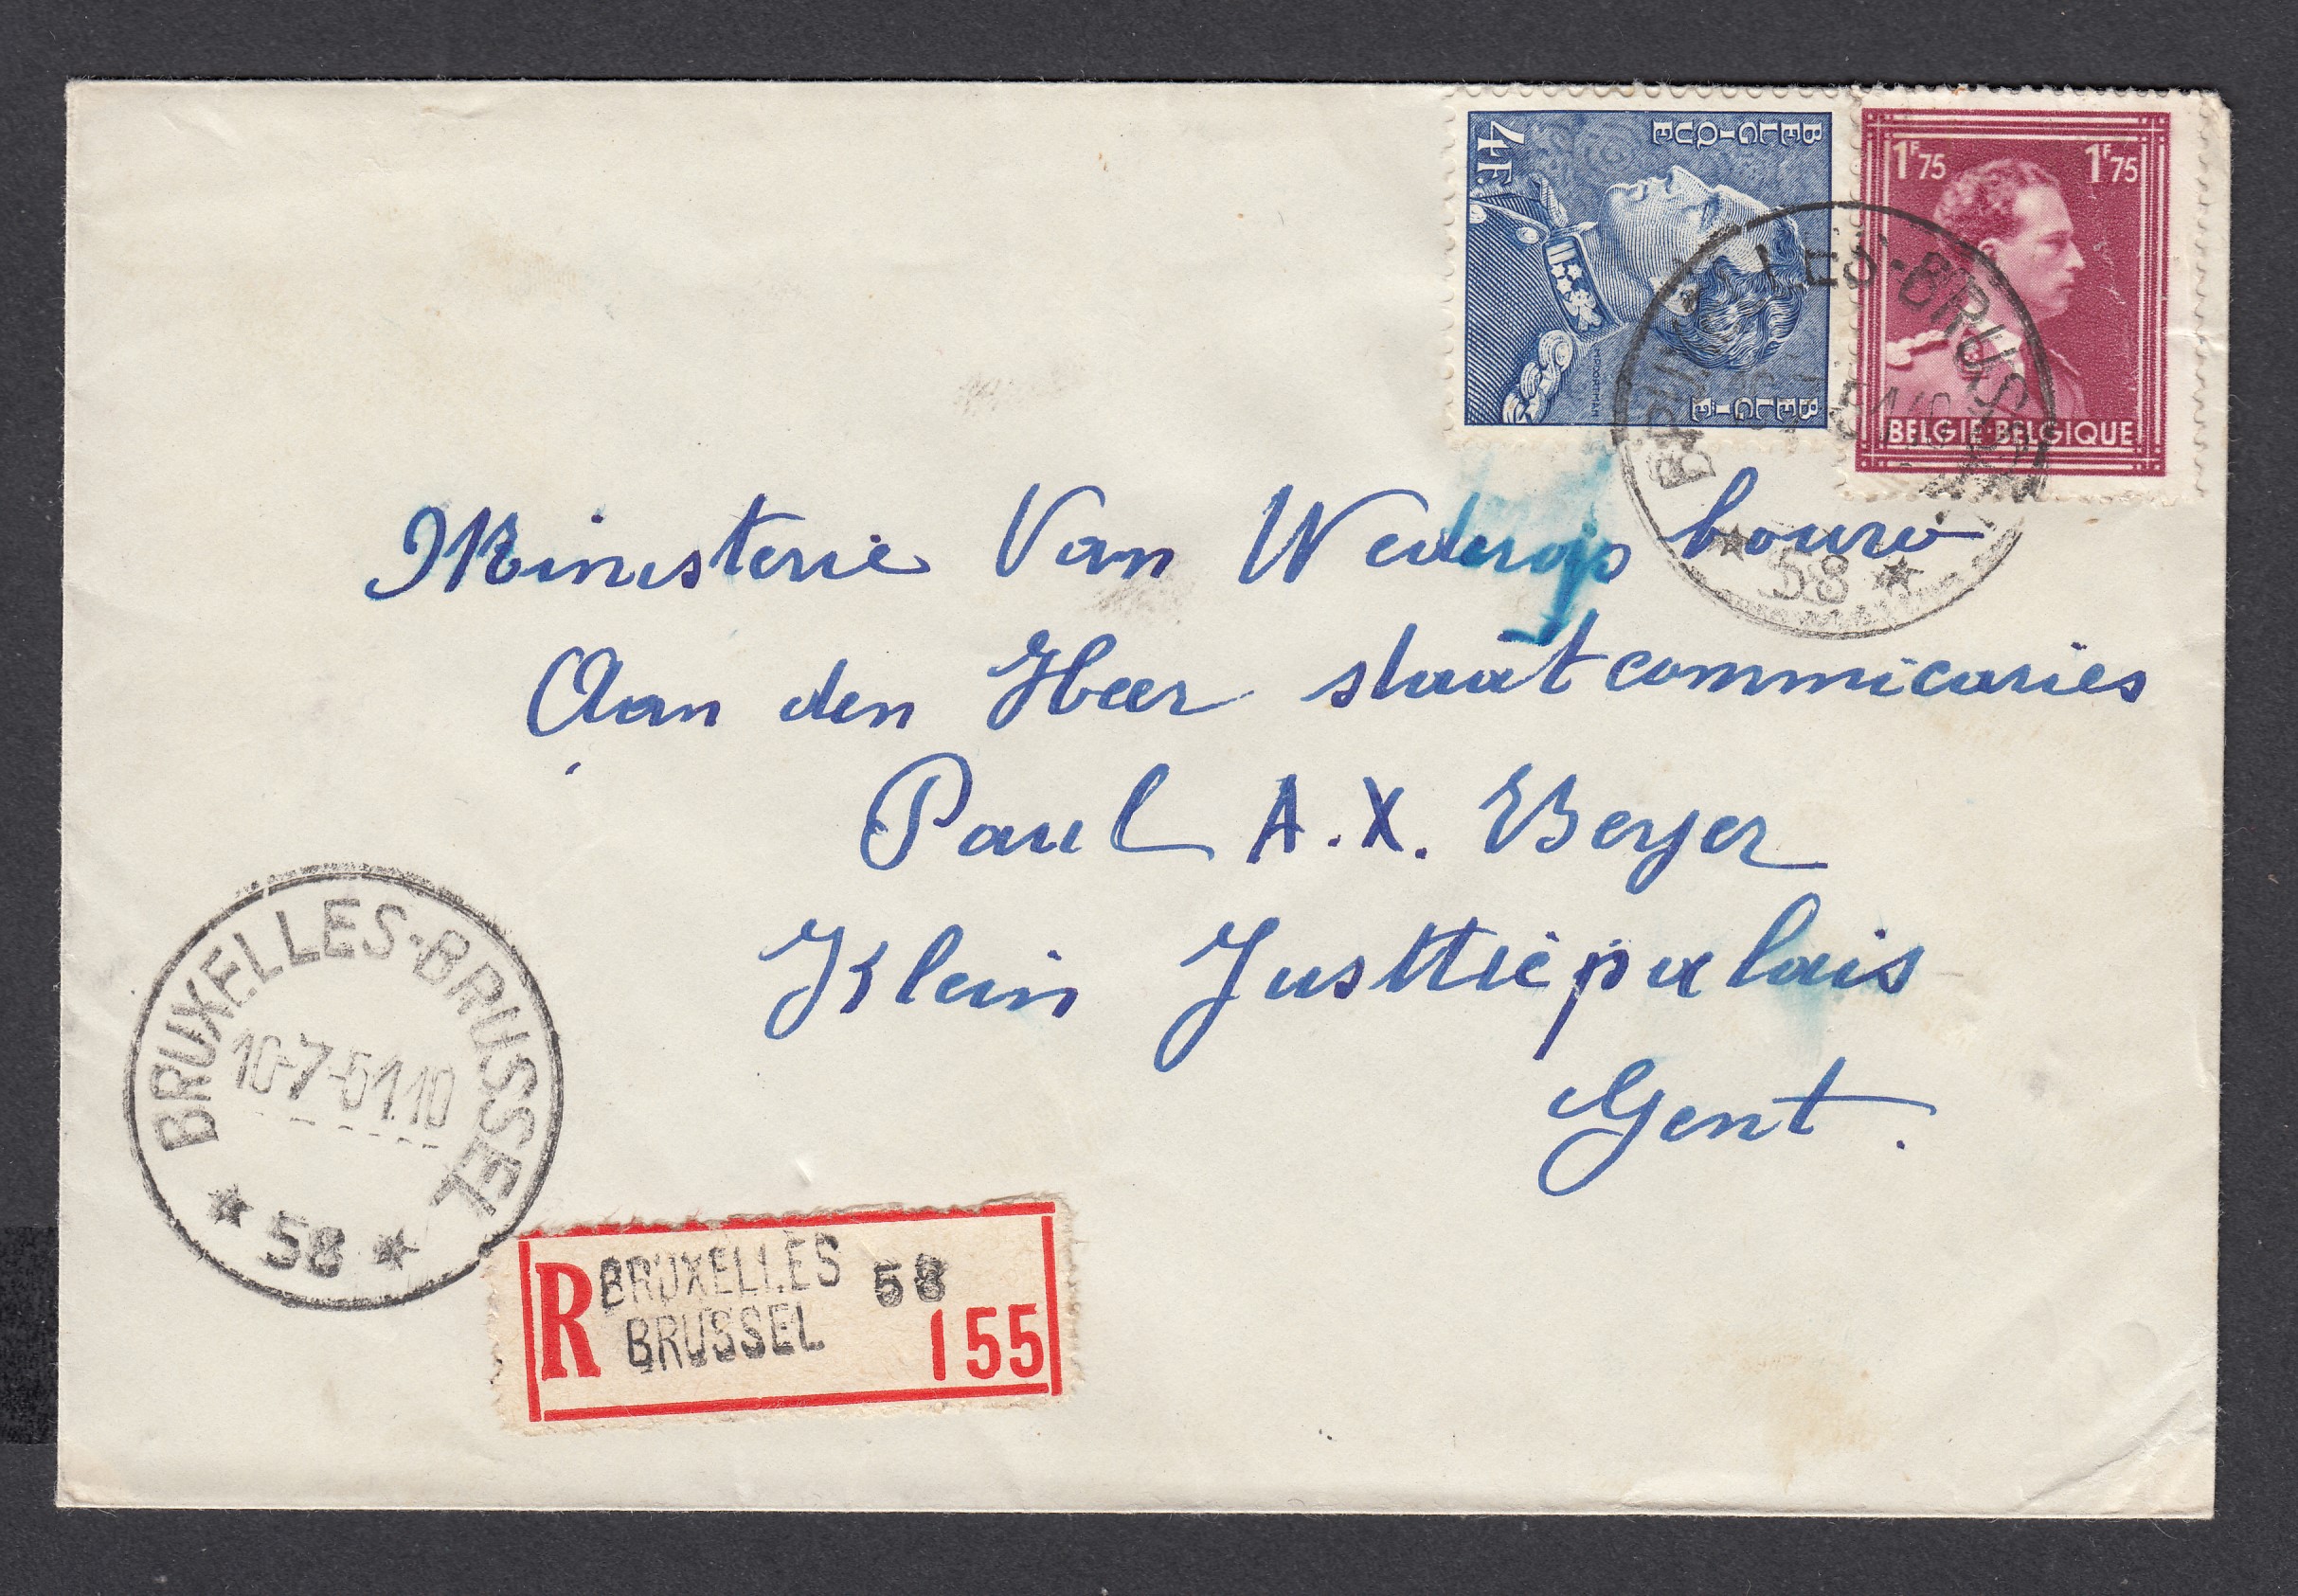 4F.
BELGIQUE
BELGIE
1F75 1F75
BELGIE-BELGIQUE
58
Ministerie Van Wederopbouw
Aan den Heer staatcommicaries
Paul A.X. Beyer
Klein Justtiepalais
Gent.
BRUXELLES-BRUSSEL
10-7-51.10
58
R BRUXELLES 58
BRUSSEL 155